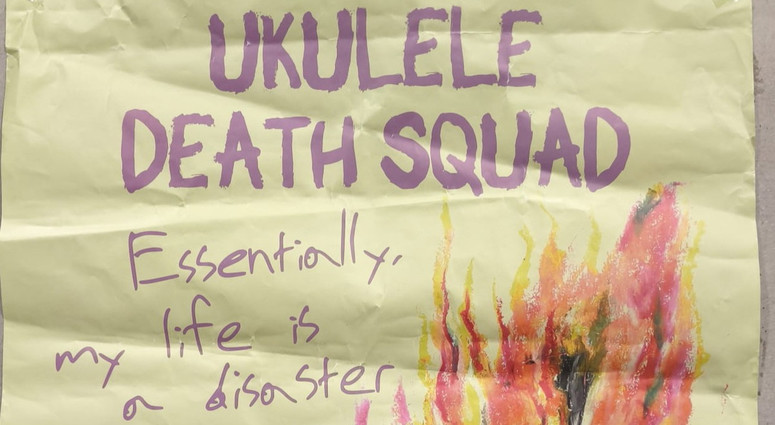 UKULELE
DEATH SQUAD
Essentially,
my life is
a disaster